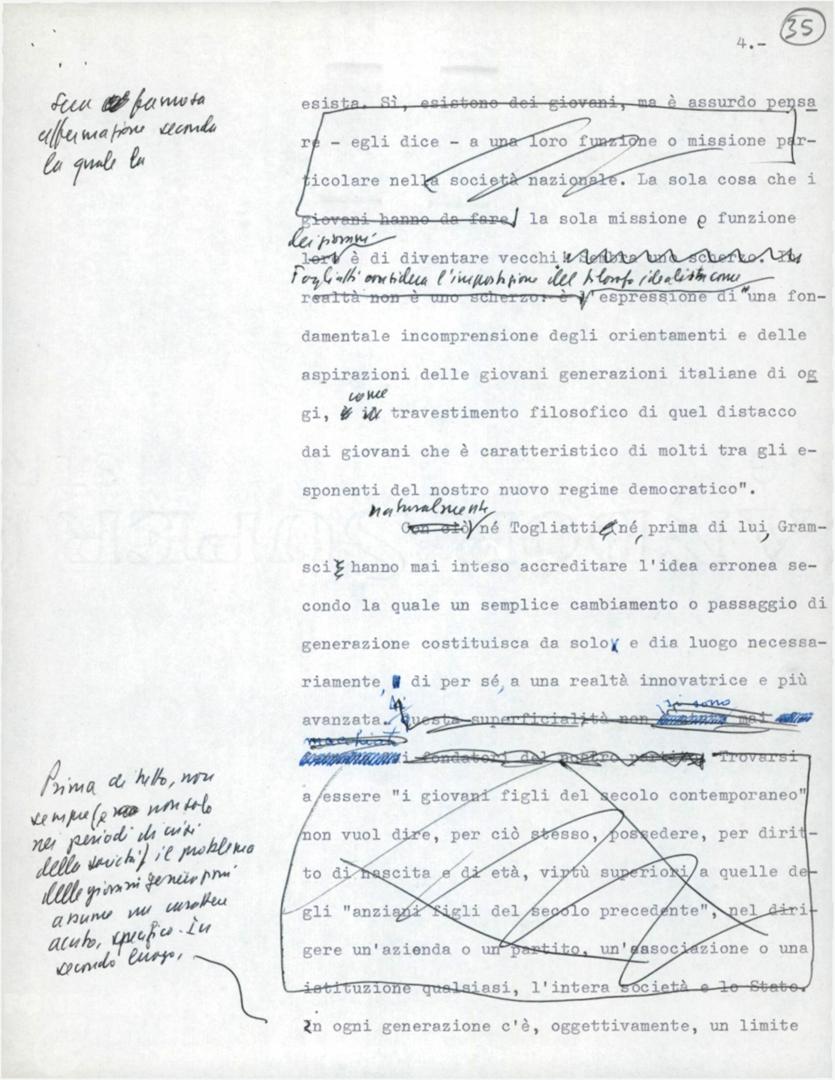 35
4.-
Sua famosa
affermazione secondo
la quale la
esista. Sì, esistono dei giovani, ma è assurdo pensa
re - egli dice - a una loro funzione o missione par-
ticolare nella società nazionale. La sola cosa che i
giovani hanno da fare, la sola missione o funzione
dei giovani
loro è di diventare vecchi. Sembra uno scherzo. In
Togliatti considera l'impostazione del filosofo idealista come
realtà non è uno scherzo: è l'espressione di "una fon-
damentale incomprensione degli orientamenti e delle
aspirazioni delle giovani generazioni italiane di og
come
gi, travestimento filosofico di quel distacco
dai giovani che è caratteristico di molti tra gli e-
sponenti del nostro nuovo regime democratico".
naturalmente
Con ciò né Togliatti, né, prima di lui, Gram-
sci hanno mai inteso accreditare l'idea erronea se-
condo la quale un semplice cambiamento o passaggio di
generazione costituisca da solo e dia luogo necessa-
riamente, di per sé, a una realtà innovatrice e più
si sono
avanzata. Questa superficialità non mai
macchiati
i fondatori del nostro partito. Trovarsi
a essere "i giovani figli del secolo contemporaneo"
non vuol dire, per ciò stesso, possedere, per dirit-
to di nascita e di età, virtù superiori a quelle de-
gli "anziani figli del secolo precedente", nel diri-
gere un'azienda o un partito, un'associazione o una
istituzione qualsiasi, l'intera società e lo Stato.
Prima di tutto, non
sempre (e non solo
nei periodi di crisi
della società) il problema
delle giovani generazioni
assume un carattere
acuto, specifico. In
secondo luogo,
In ogni generazione c'è, oggettivamente, un limite